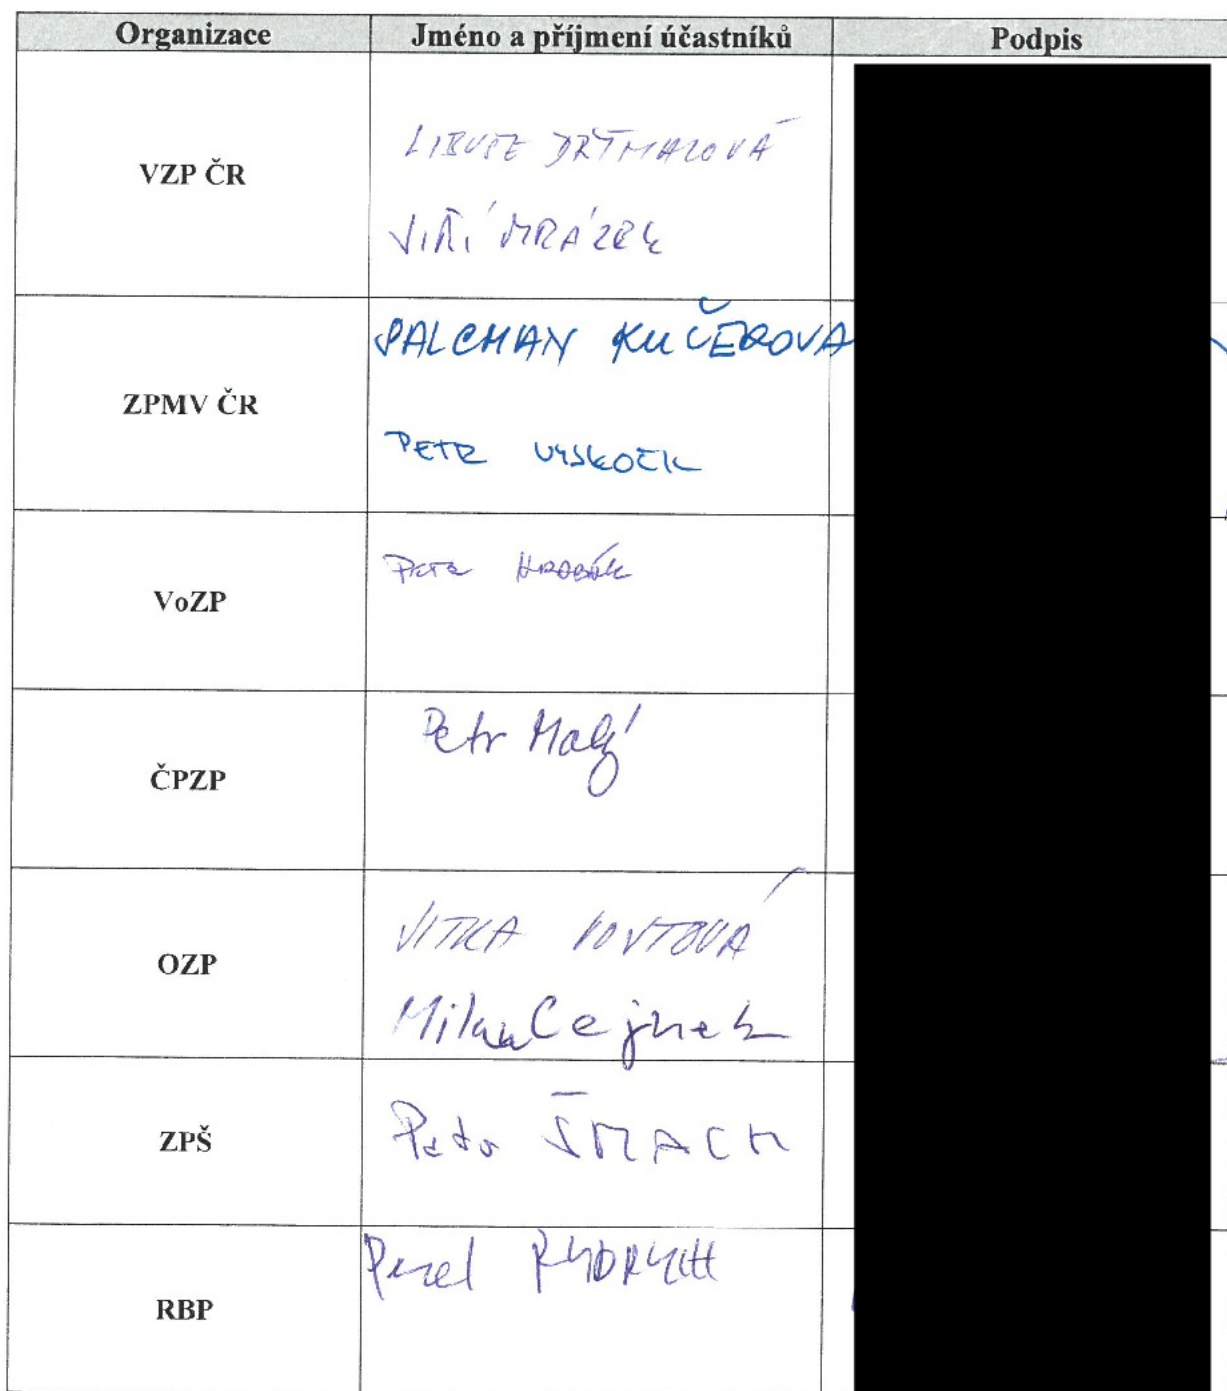 Organizace Jméno a příjmení účastníků Podpis
VZP ČR
LIBUŠE
JIŘÍ MRÁZEK
ZPMV ČR
PALCMAN KUČEROVÁ
PETR VYSKOČIL
VoZP
PETR
ČPZP
Petr Malý
OZP
JITKA VOJTOVÁ
Milan Cejnek
ZPŠ
Petr ŠMACH
RBP
Pavel RYDRYCH